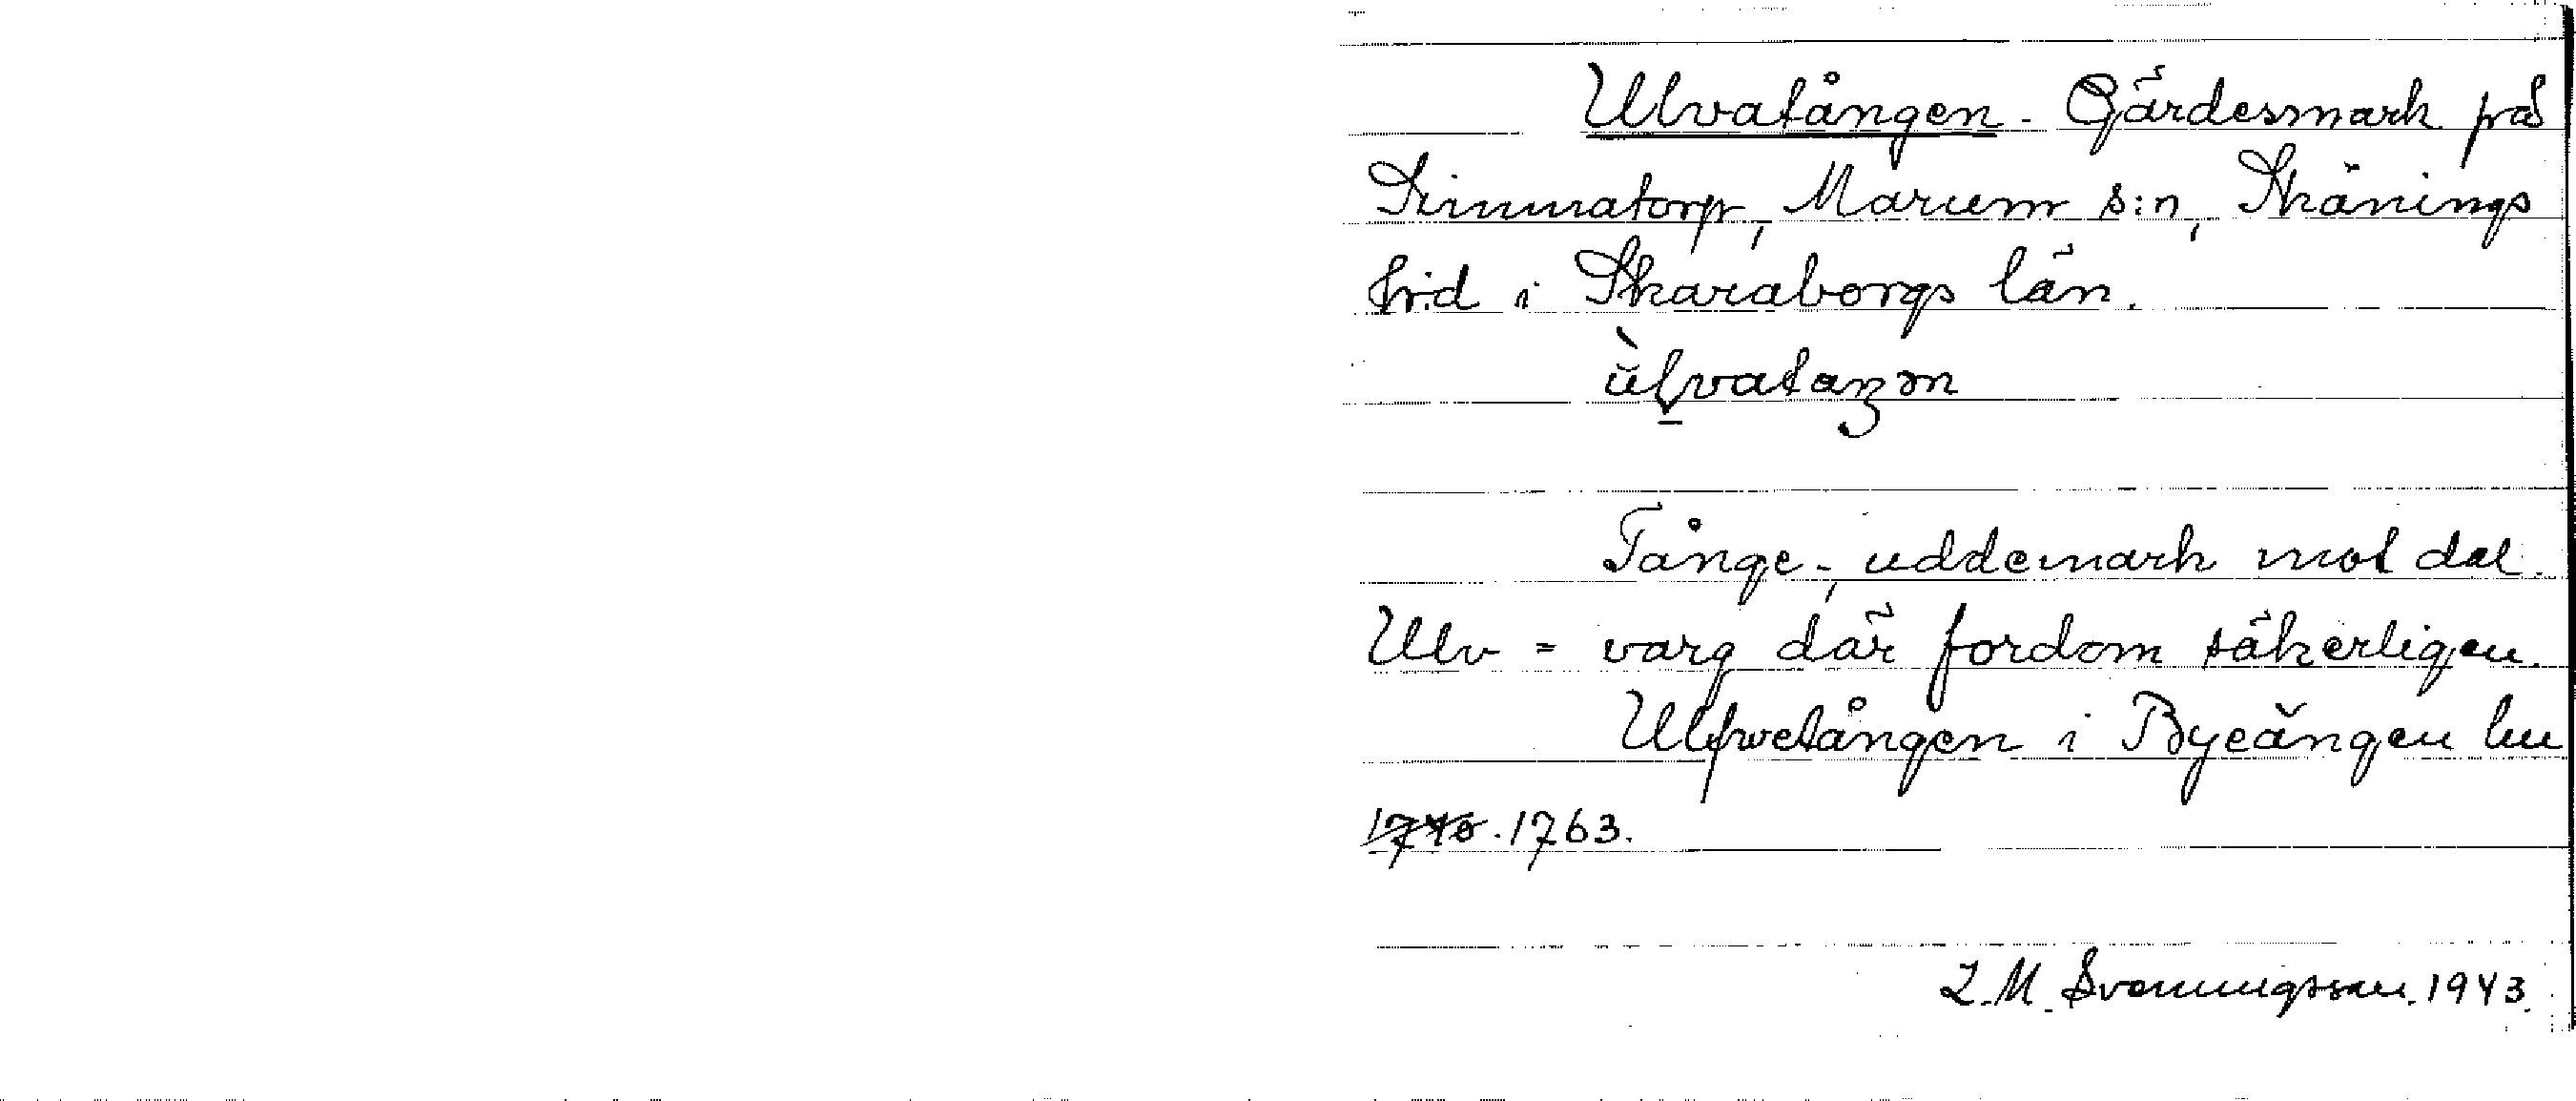 Ulvatången - Gärdesmark på
Kimmatorp, Marum s:n, Skånings
hrd i Skaraborgs län.
Tånge-, uddemark mot dal.
Ulv = varg där fordom säkerligen.
Ulfwetången i Byeängen lm
1740. 1763.
Z. M. Svenningsson. 1943.